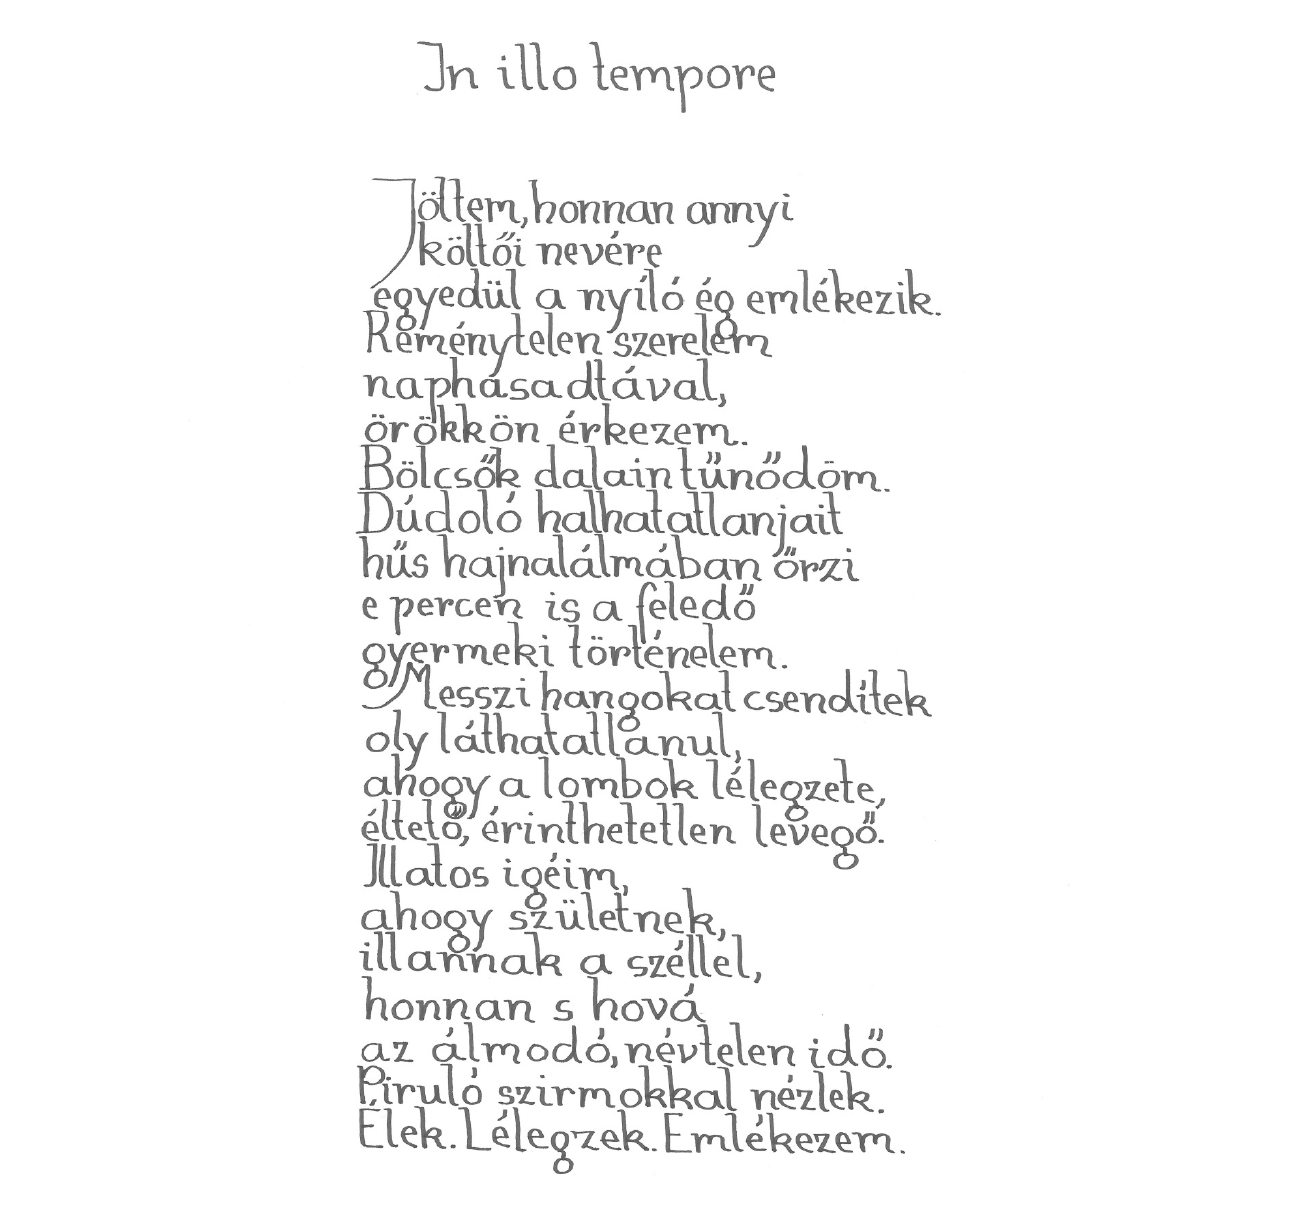 In illo tempore
Jöttem, honnan annyi
költői nevére
egyedül a nyíló ég emlékezik.
Reménytelen szerelem
naphasadtával,
örökkön érkezem.
Bölcsők dalain tűnődöm.
Dúdoló halhatatlanjait
hűs hajnalálmában őrzi
e percen is a feledő
gyermeki történelem.
Messzi hangokat csendítek
oly láthatatlanul,
ahogy a lombok lélegzete,
éltető, érinthetetlen levegő.
Illatos igéim,
ahogy születnek,
illannak a széllel,
honnan s hová
az álmodó, névtelen idő.
Piruló szirmokkal nézlek.
Élek. Lélegzek. Emlékezem.